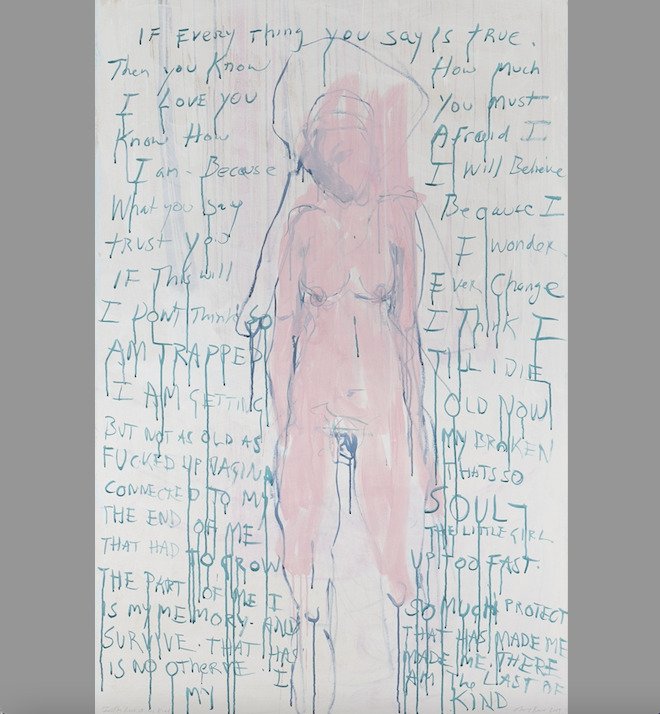 IF Every Thing you say Is true.
Then you Know How much
I LOVE you You Must
Know How Afraid I
I am - Because I Will Believe
What you Say Because I
trust you I wonder
IF This will Ever Change
I DONT Think SO I Think I
AM TRAPPED TILL I DIE
I AM GETTING OLD NOW
BUT NOT AS OLD AS MY BROKEN
FUCKED UP VAGINA THATS SO
CONNECTED TO MY SOUL
THE END OF ME THE LITTLE GIRL
THAT HAD TO GROW UP TOO FAST.
THE PART OF ME I SO MUCH PROTECT
IS MY MEMORY. AND THAT HAS MADE ME
SURVIVE. THAT HAS MADE ME. THERE
IS NO I AM The LAST OF
MY KIND